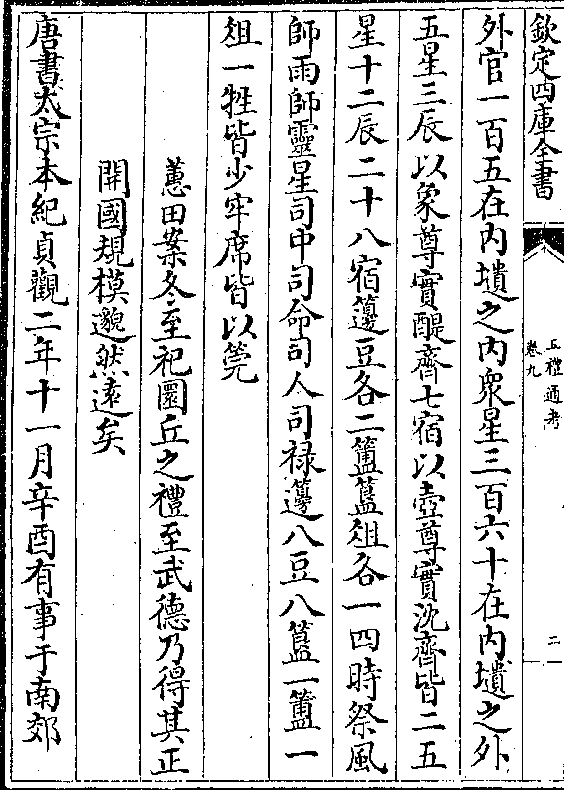 欽定四庫全書
五禮通考
卷九
二
外官一百五在内壝之内衆星三百六十在内壝之外
五星三辰以象尊實醍齊七宿以壺尊實沈齊皆二五
星十二辰二十八宿籩豆各二簠簋俎各一四時祭風
師雨師靈星司中司命司人司禄籩八豆八簋一簠一
俎一牲皆少牢席皆以莞
蕙田案冬至祀圜丘之禮至武德乃得其正
開國規模邈然遠矣
唐書太宗本紀貞觀二年十一月辛酉有事于南郊